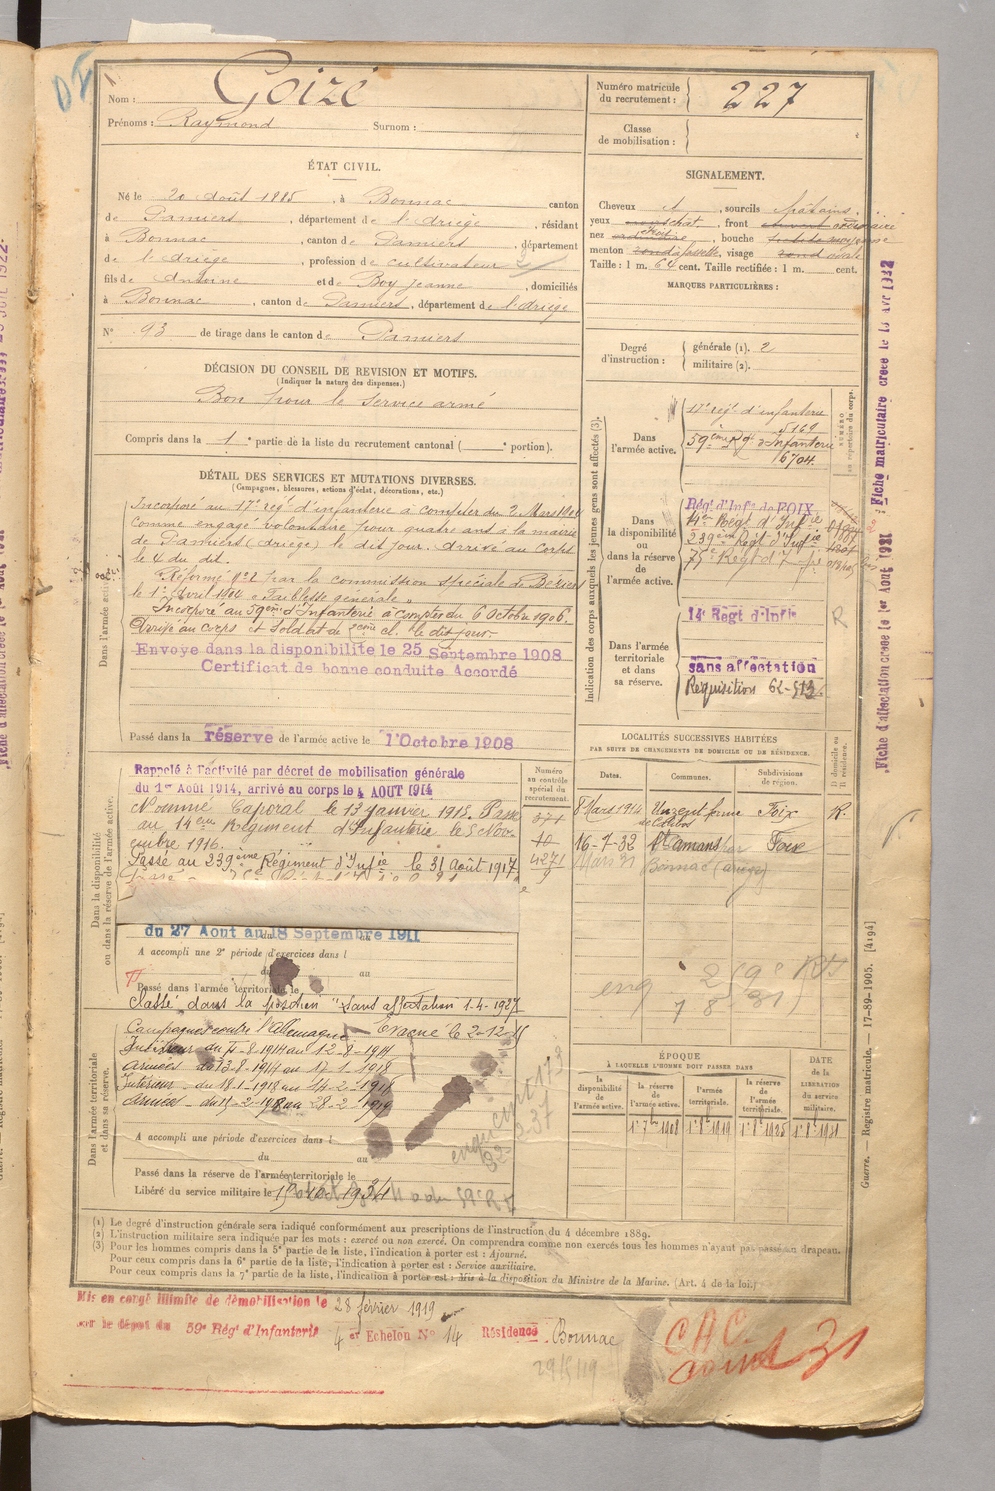 Nom : Goizé
Prénoms : Raymond Surnom :
Numéro matricule du recrutement : 227
Classe de mobilisation :
ÉTAT CIVIL.
Né le 20 Août 1885, à Bonnac canton
de Pamiers, département de l'Ariège, résidant
à Bonnac, canton de Pamiers, département
de l'Ariège, profession de cultivateur
fils de Antoine et de Boy Jeanne, domiciliés
à Bonnac, canton de Pamiers, département de l'Ariège
N° 93 de tirage dans le canton de Pamiers
SIGNALEMENT.
Cheveux et, sourcils châtains,
yeux chat, front ordinaire
nez étroit, bouche moyenne
menton rond à fossette, visage ovale
Taille : 1 m. 64 cent. Taille rectifiée : 1 m. cent.
MARQUES PARTICULIÈRES :
Degré d'instruction : générale (1). 2
militaire (2).
DÉCISION DU CONSEIL DE REVISION ET MOTIFS.
(Indiquer la nature des dispenses.)
Bon pour le service armé
Compris dans la 1e partie de la liste du recrutement cantonal ( e portion).
DÉTAIL DES SERVICES ET MUTATIONS DIVERSES.
(Campagnes, blessures, actions d'éclat, décorations, etc.)
Dans l'armée active.
Incorporé au 17e régt d'infanterie à compter du 2 Mars 1904
comme engagé volontaire pour quatre ans à la mairie
de Pamiers (Ariège) le dit jour. Arrivé au corps
le 4 du dit.
Réformé n° 2 par la commission spéciale de Béziers
le 1er Avril 1904 "Faiblesse générale"
Incorporé au 59eme d'Infanterie à compter du 6 Octobre 1906.
Arrivé au corps et soldat de 2eme cl. le dit jour.
Envoyé dans la disponibilité le 25 Septembre 1908
Certificat de bonne conduite Accordé
Passé dans la réserve de l'armée active le 1 Octobre 1908
Indication des corps auxquels les jeunes gens sont affectés (3).
NUMÉRO au répertoire du corps.
Dans l'armée active.
17e régt d'infanterie
5169
59eme Rgt d'Infanterie
6704
Dans la disponibilité ou dans la réserve de l'armée active.
Régt d'Infie de FOIX
14e Régt d'Infie
239eme Régt d'Infie
Dans l'armée territoriale et dans sa réserve.
14e Régt d'Infie
R
sans affectation
Réquisition 62-513
Dans la disponibilité ou dans la réserve de l'armée active.
Rappelé à l'activité par décret de mobilisation générale
du 1er Août 1914, arrivé au corps le 4 AOUT 1914
Nommé Caporal le 13 Janvier 1915. Passé
au 14eme Régiment d'Infanterie le 5 Nov-
embre 1916.
Passé au 239eme Régiment d'Infie le 31 Août 1917
du 27 Aout au 18 Septembre 1911
A accompli une 2e période d'exercices dans l
du au
Passé dans l'armée territoriale le
Classé dans la position "sans affectation 1-4-1927
Numéro au contrôle spécial du recrutement.
371
10
4271
9
LOCALITÉS SUCCESSIVES HABITÉES
PAR SUITE DE CHANGEMENTS DE DOMICILE OU DE RÉSIDENCE.
Dates. Communes. Subdivisions de région. D domicile ou R résidence.
8 Mars 1914 Unzent Foix R.
16-7-32 St Amans Foix
Mars 31 Bonnac (Ariège)
Dans l'armée territoriale et dans sa réserve.
Campagnes contre l'Allemagne
Évacué le 2-12-15
Intérieur du 4-8-1914 au 12-8-1914
Armées du 13-8-1914 au 17-1-1918
Intérieur du 18-1-1918 au 14-2-1918
Armées du 15-2-1918 au 28-2-1919
A accompli une période d'exercices dans l
du au
Passé dans la réserve de l'armée territoriale le
Libéré du service militaire le 15-10-1934
ÉPOQUE
À LAQUELLE L'HOMME DOIT PASSER DANS
la disponibilité de l'armée active. la réserve de l'armée active. l'armée territoriale. la réserve de l'armée territoriale. DATE de la LIBÉRATION du service militaire.
(1) Le degré d'instruction générale sera indiqué conformément aux prescriptions de l'instruction du 4 décembre 1889.
(2) L'instruction militaire sera indiquée par les mots : exercé ou non exercé. On comprendra comme non exercés tous les hommes n'ayant pas passé au drapeau.
(3) Pour les hommes compris dans la 5e partie de la liste, l'indication à porter est : Ajourné.
Pour ceux compris dans la 6e partie de la liste, l'indication à porter est : Service auxiliaire.
Pour ceux compris dans la 7e partie de la liste, l'indication à porter est : Mis à la disposition du Ministre de la Marine. (Art. 4 de la loi.)
Mis en congé illimité de démobilisation le 28 février 1919
par le dépôt du 59e Régt d'Infanterie 4er Echelon N° 14 Résidence Bonnac
29/5/19
CAC
août 31
Fiche d'affectation créée le 1er Août 1931
Fiche matriculaire créée le 13 Avr 1932
Guerre. — Registre matricule. — 17-89-1905. [4194]